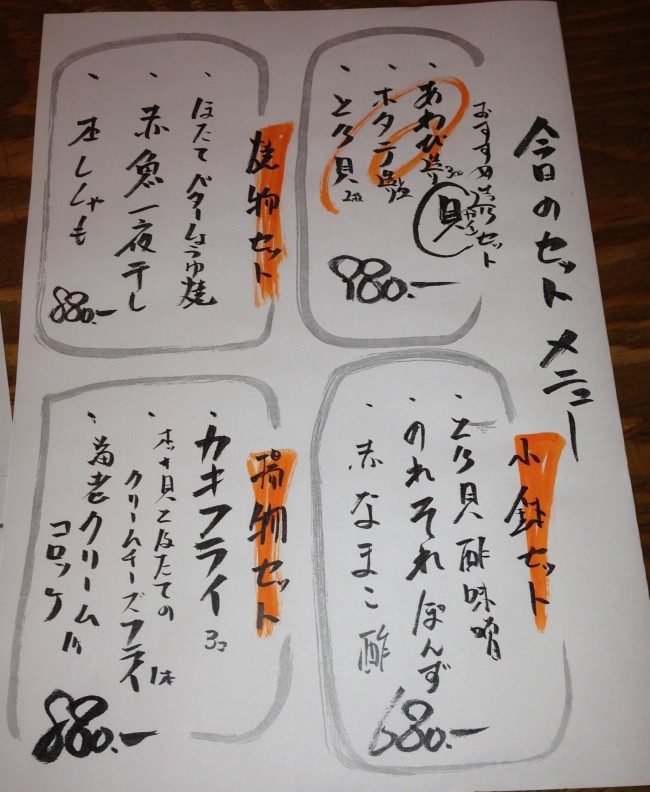 今日のセットメニュー
おすすめ造りセット
貝
・あわび造り3コ
・ホタテ造り
・とり貝2枚
980.-
焼物セット
・ほたてバターしょうゆ焼
・赤魚一夜干し
・子ししゃも
880.-
小鉢セット
・とり貝酢味噌
・のれそれぽんず
・赤なまこ酢
680.-
揚物セット
・カキフライ3コ
・ホッキ貝とほたての
クリームチーズフライ1本
・海老クリーム
コロッケ1ケ
880.-